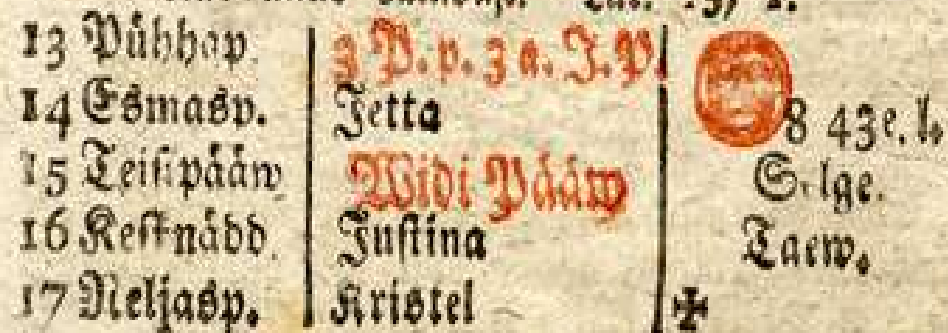 13 Pühhap. 3 P. p. 3 a. J. P.
14 Esmasp. Jetta 8 43 e. l.
15 Teisipääw Widi Pääw Selge.
16 Kestnädd. Justina Taew.
17 Neljasp. Kristel ✠